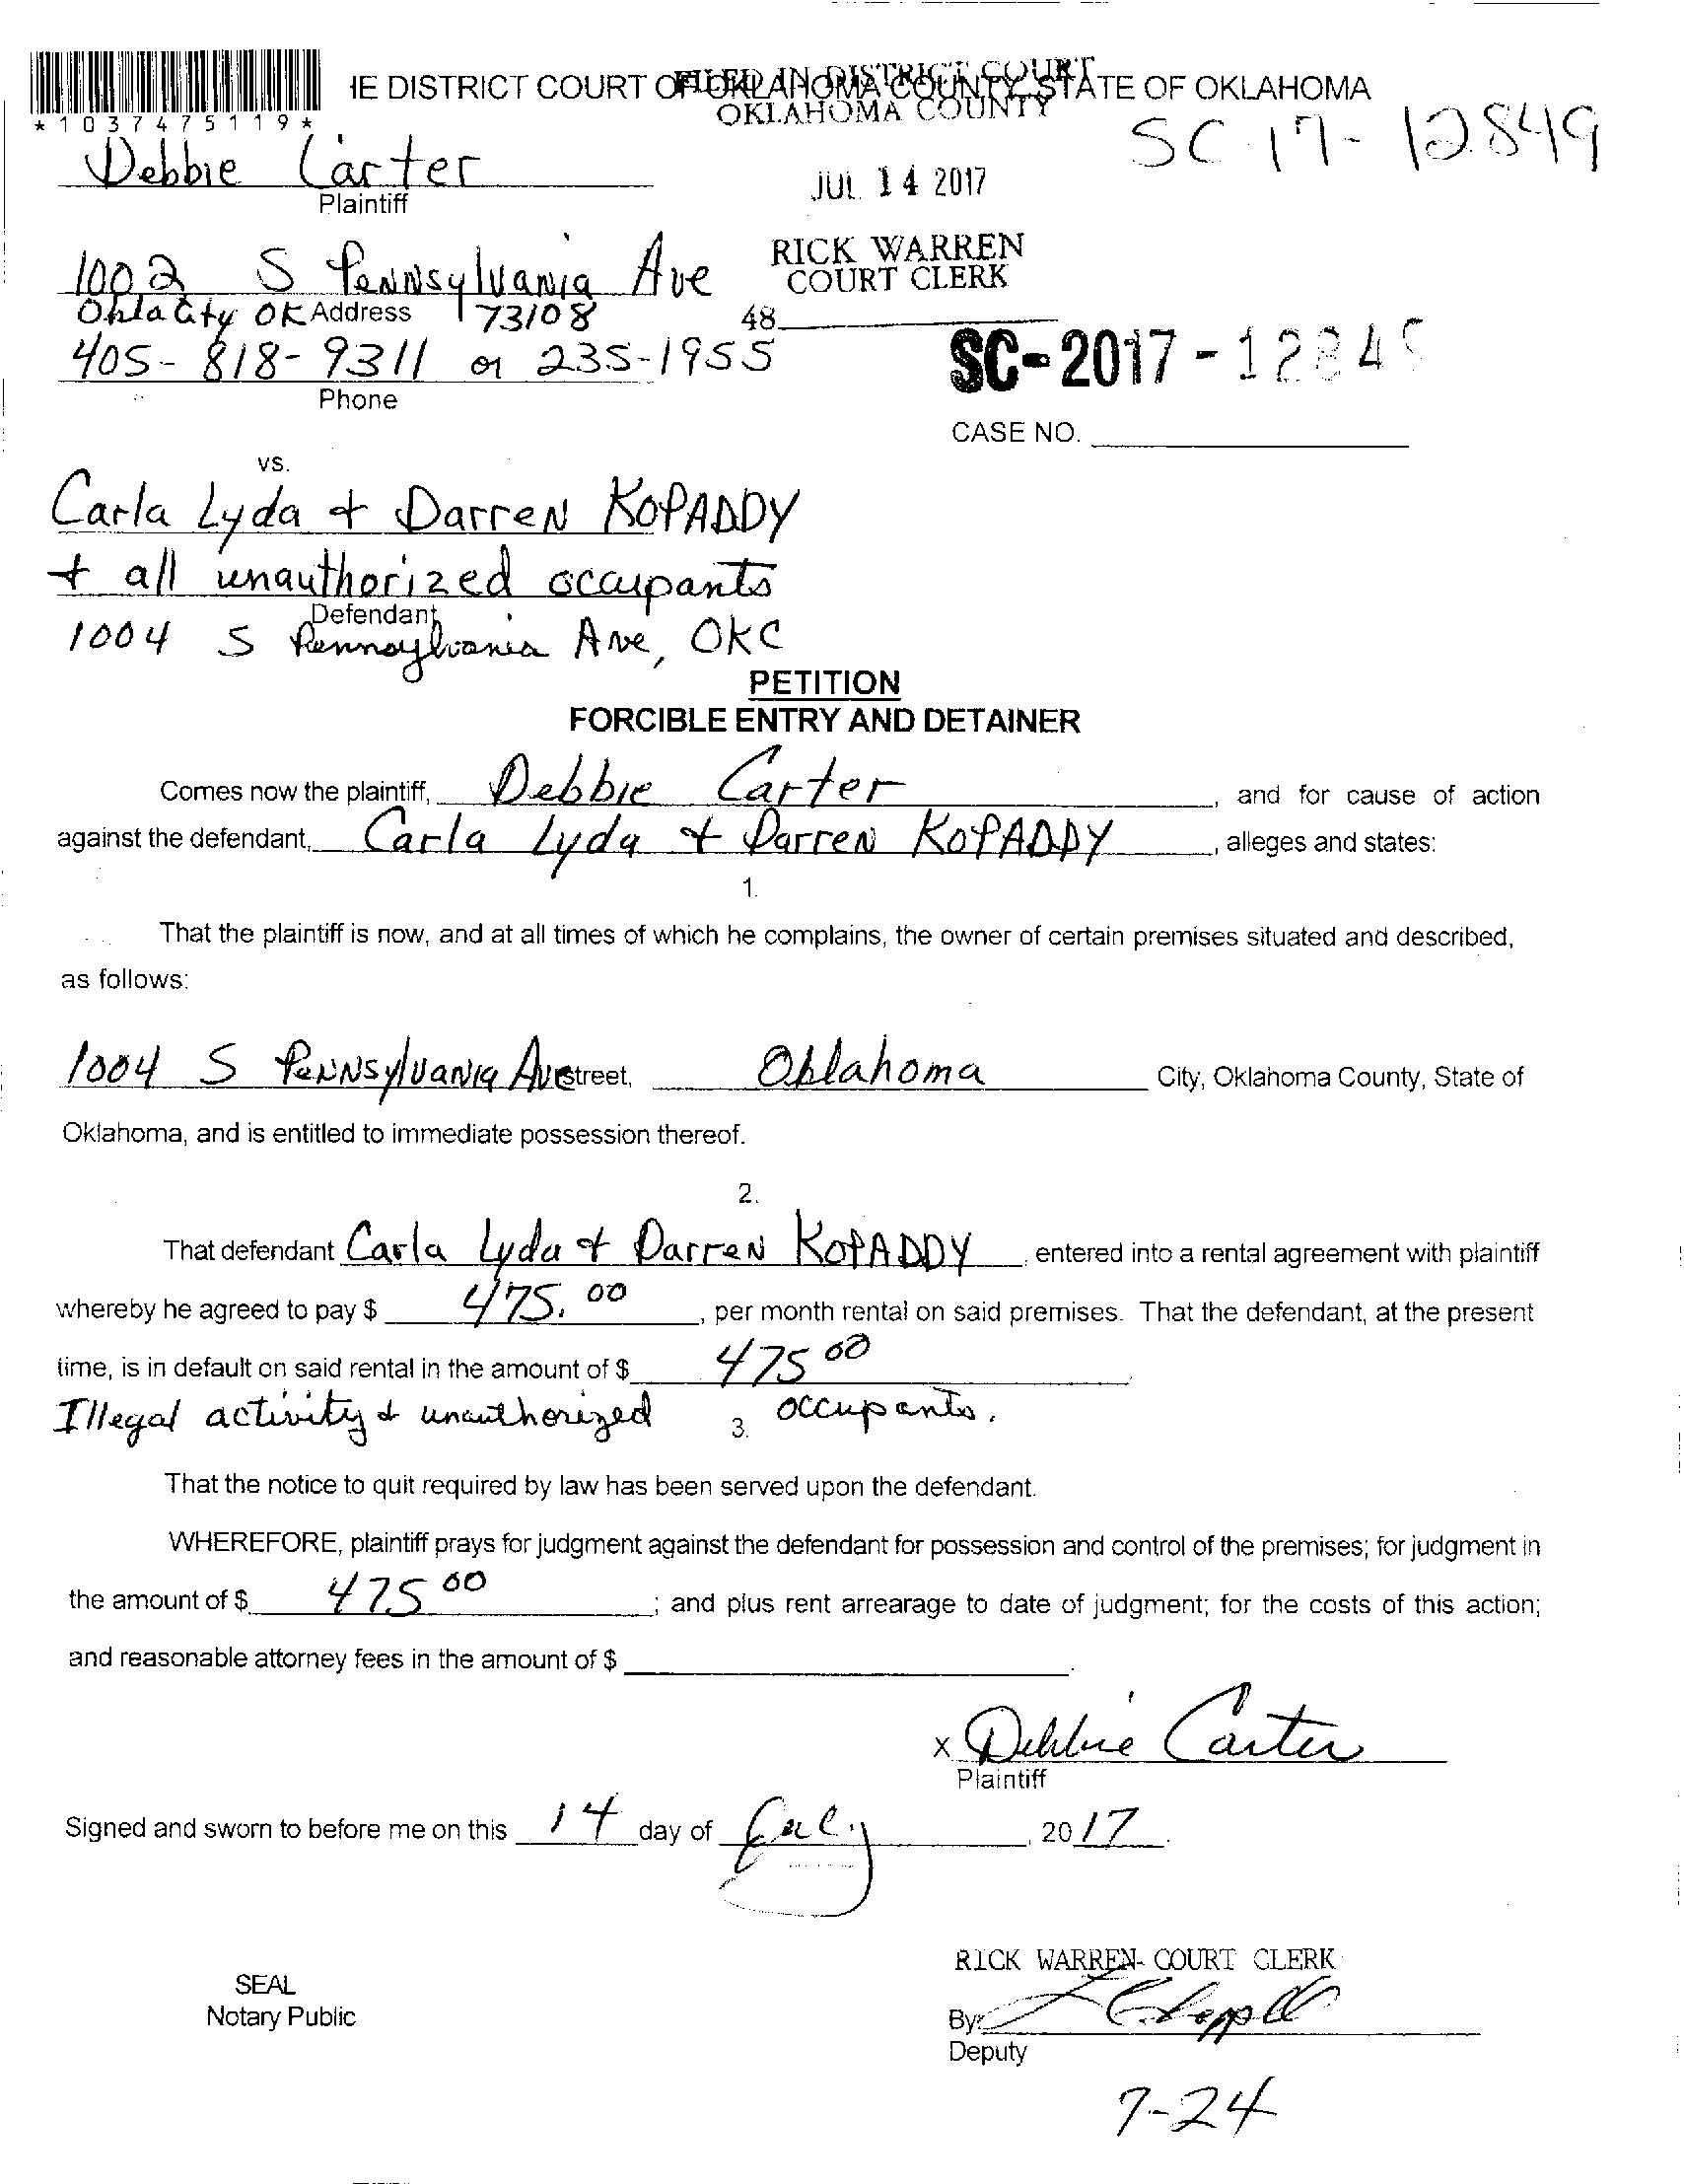 IE DISTRICT COURT OF OKLAHOMA COUNTY, STATE OF OKLAHOMA
FILED IN DISTRICT COURT
OKLAHOMA COUNTY
*1037475119*
SC 17-12849
Debbie Carter
Plaintiff
JUL 14 2017
RICK WARREN
COURT CLERK
1002 S Pennsylvania Ave
Okla City OK Address 73108
48.
405-818-9311 or 235-1955
Phone
SC-2017-1284
CASE NO.
vs.
Carla Lyda + Darren KOPADDY
+ all unauthorized occupants
Defendant
1004 S Pennsylvania Ave, OKC
PETITION
FORCIBLE ENTRY AND DETAINER
Comes now the plaintiff, Debbie Carter, and for cause of action
against the defendant, Carla Lyda + Darren KOPADDY, alleges and states:
1.
That the plaintiff is now, and at all times of which he complains, the owner of certain premises situated and described,
as follows:
1004 S Pennsylvania Ave Street, Oklahoma City, Oklahoma County, State of
Oklahoma, and is entitled to immediate possession thereof.
2.
That defendant Carla Lyda + Darren KOPADDY, entered into a rental agreement with plaintiff
whereby he agreed to pay $ 475.00, per month rental on said premises. That the defendant, at the present
time, is in default on said rental in the amount of $ 475 00.
Illegal activity + unauthorized occupants.
3.
That the notice to quit required by law has been served upon the defendant.
WHEREFORE, plaintiff prays for judgment against the defendant for possession and control of the premises; for judgment in
the amount of $ 475 00; and plus rent arrearage to date of judgment; for the costs of this action;
and reasonable attorney fees in the amount of $
x Debbie Carter
Plaintiff
Signed and sworn to before me on this 14 day of July, 2017.
RICK WARREN- COURT CLERK
SEAL
Notary Public
By:
Deputy
7-24